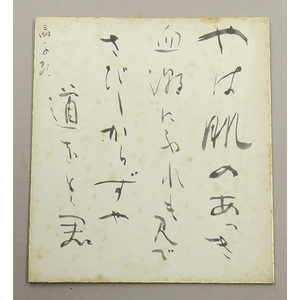 やは肌のあつき
血潮にふれも見で
さびしからずや
道をとく君
晶子